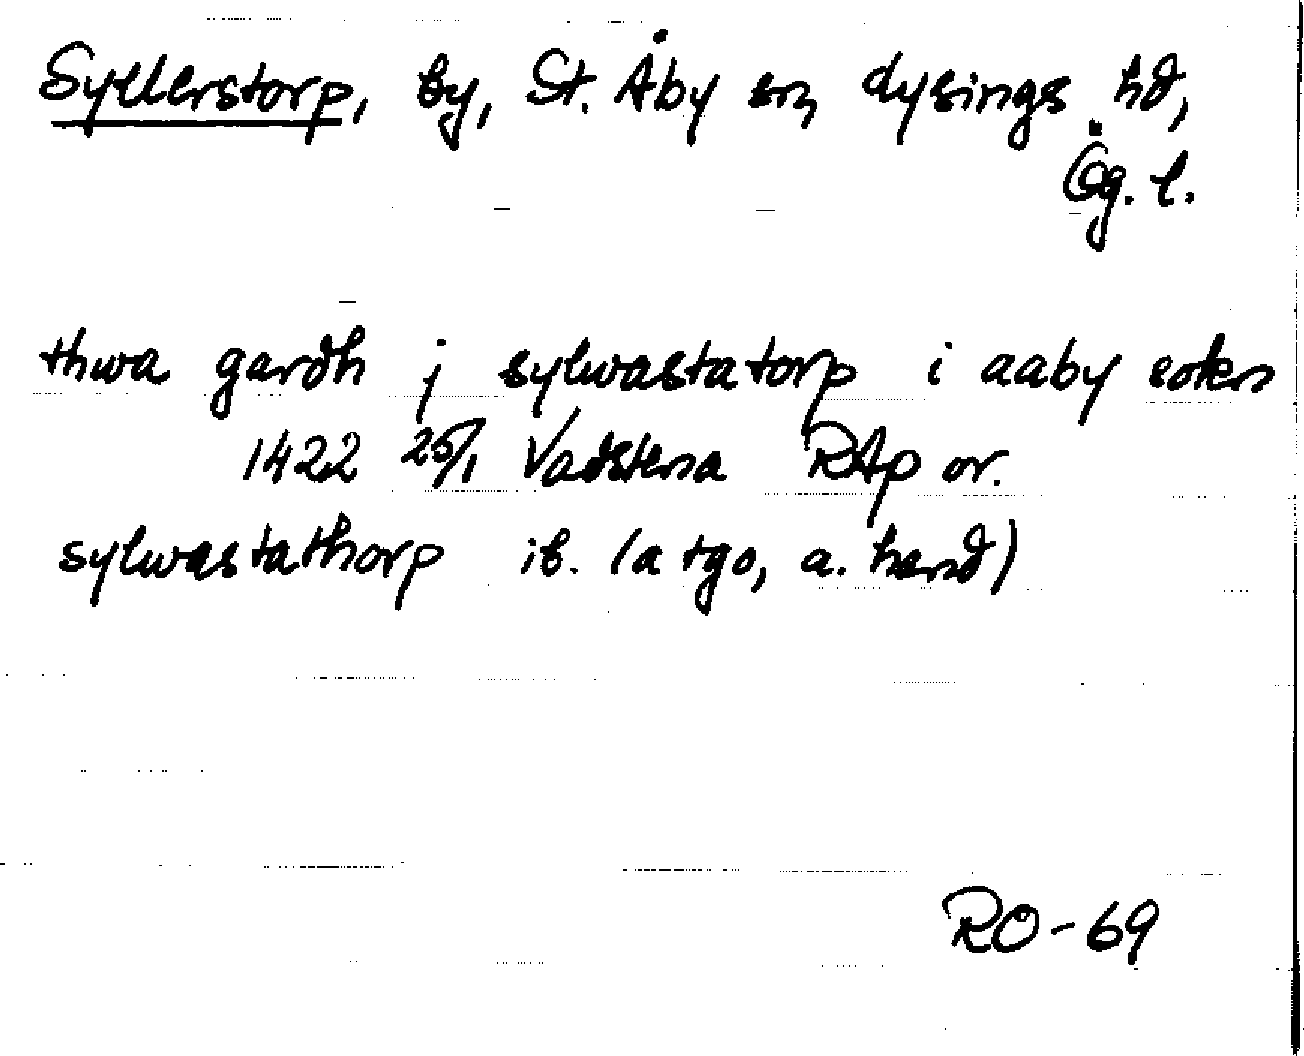 Syllerstorp, by, St. Åby sn, dysings hd,
Ög. l.
thwa gardh j sylwastatorp i aaby sokn
1422 25/1 Vadstena RAp or.
sylwastathorp ib. (a tgo, a. hand)
RO-69